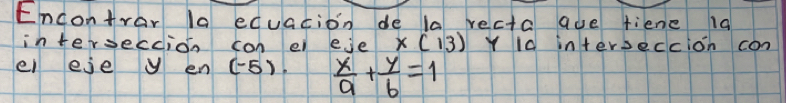 Encontrar la ecuación de la recta que tiene la
intersección con el eje x (13) y la intersección con
el eje y en (-5). x/a + y/b = 1